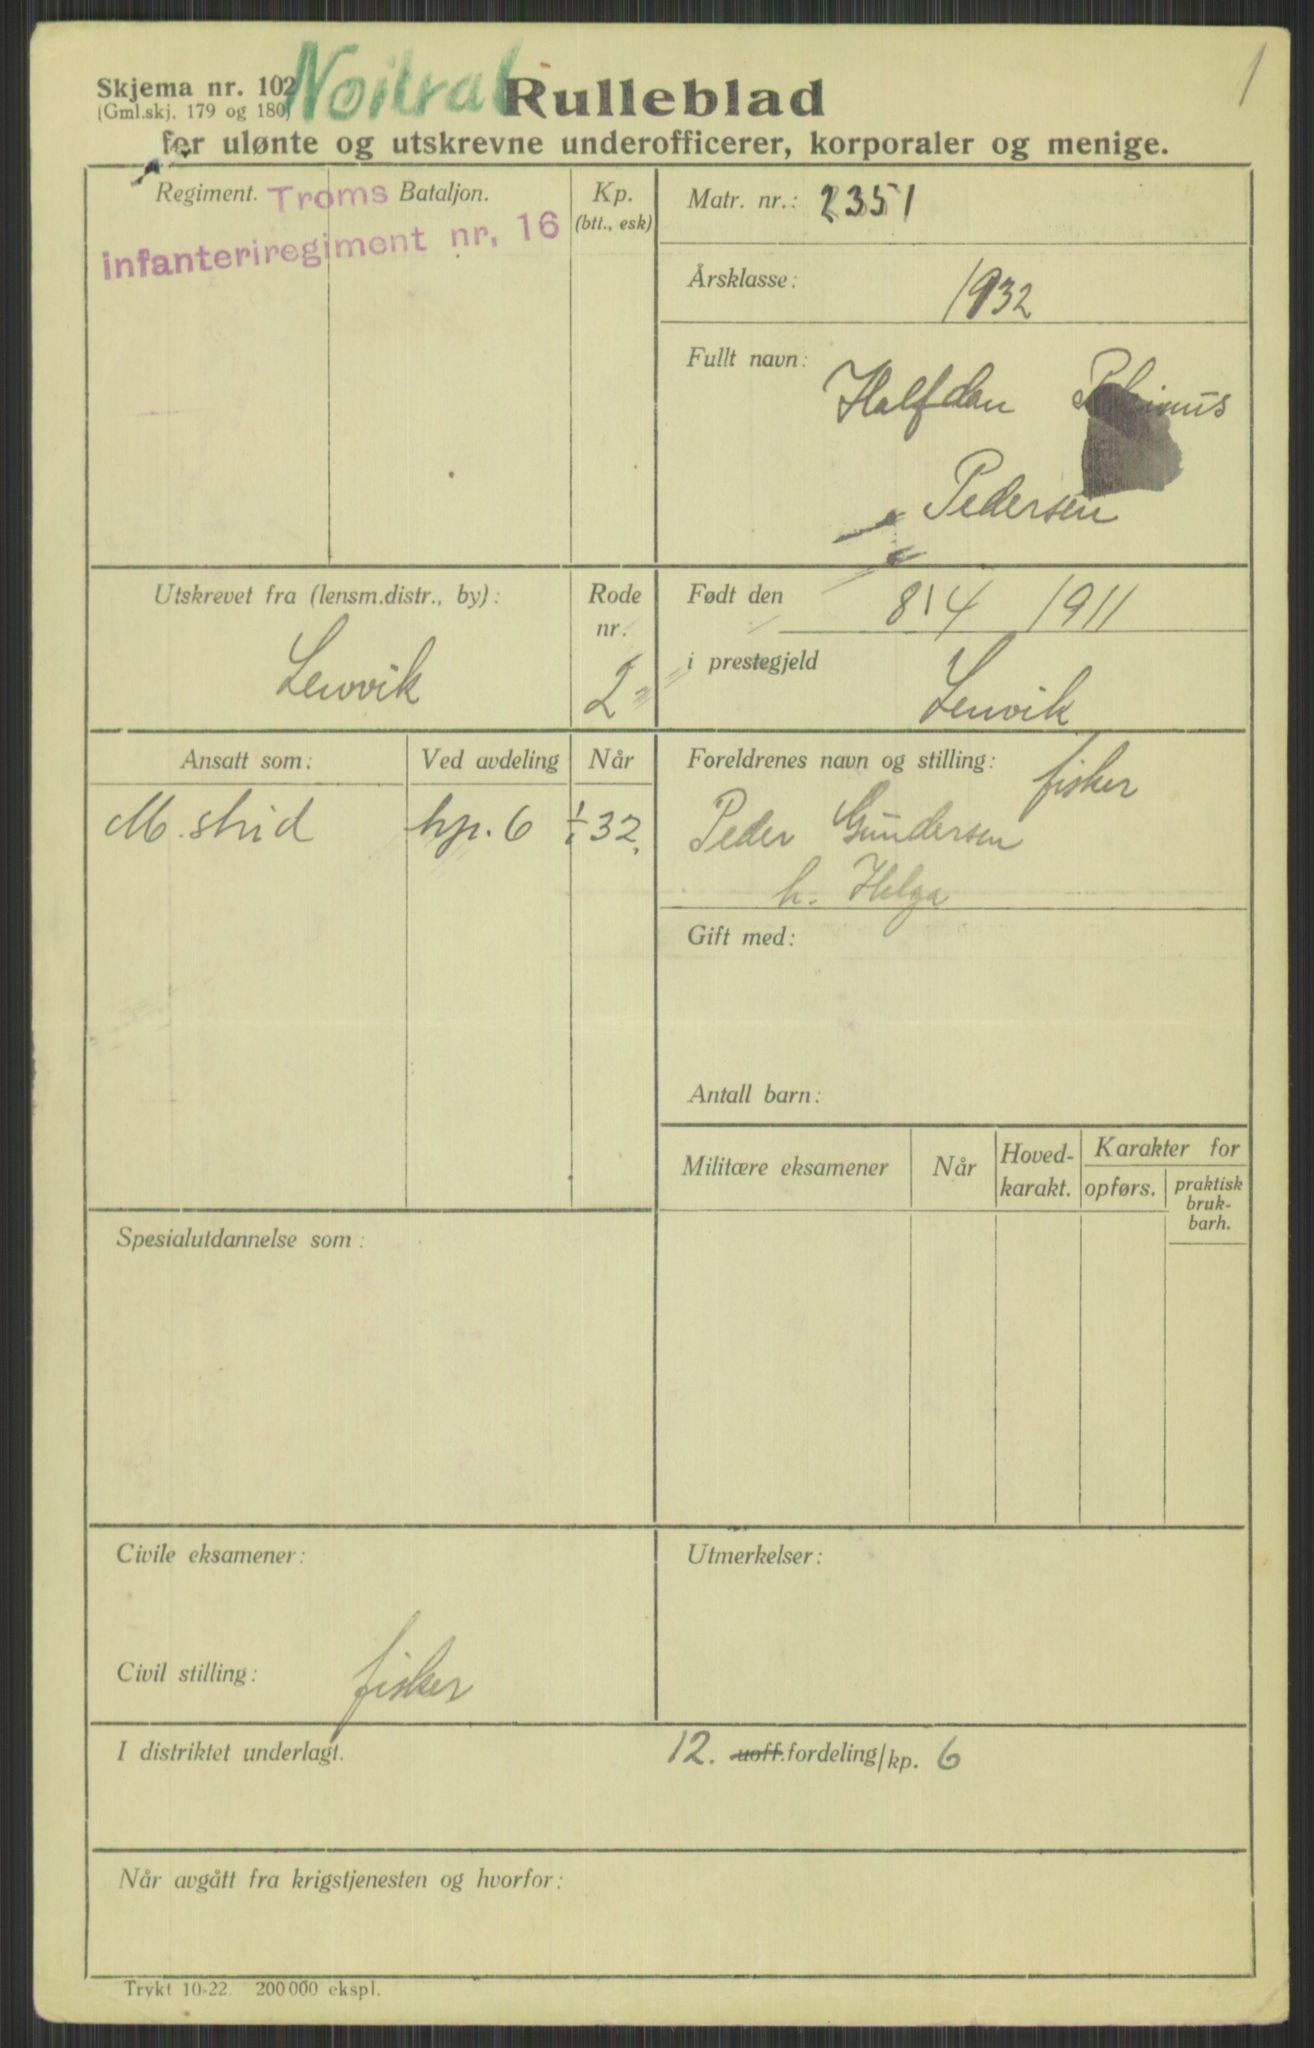 Nøitral
1
Skjema nr. 102
(Gml.skj. 179 og 180)
Rulleblad
for ulønte og utskrevne underofficerer, korporaler og menige.
Regiment. Troms Bataljon.
infanteriregiment nr. 16
Kp.
(btt., esk)
Matr. nr.: 2351
Årsklasse:
1932
Fullt navn:
Halfdan
Pedersen
Utskrevet fra (lensm.distr., by):
Lenvik
Rode
nr.
2
Født den 8/4 1911
i prestegjeld Lenvik
Ansatt som: Ved avdeling Når
M. strid kp. 6 1/1 32.
Foreldrenes navn og stilling: fisker
Peder Gundersen
h. Helga
Gift med:
Antall barn:
Militære eksamener
Når
Hoved-
karakt.
Karakter for
opførs.
praktisk
bruk-
barh.
Spesialutdannelse som:
Civile eksamener:
Utmerkelser:
Civil stilling: fisker
I distriktet underlagt. 12. uoff.fordeling/kp. 6
Når avgått fra krigstjenesten og hvorfor:
Trykt 10-22. 200 000 ekspl.